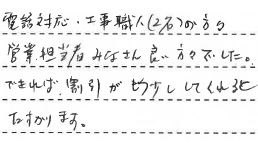 電話対応・工事職人(2名)の方々
営業担当者みなさん良い方々でした。
できれば割引がもう少ししてくれると
たすかります。